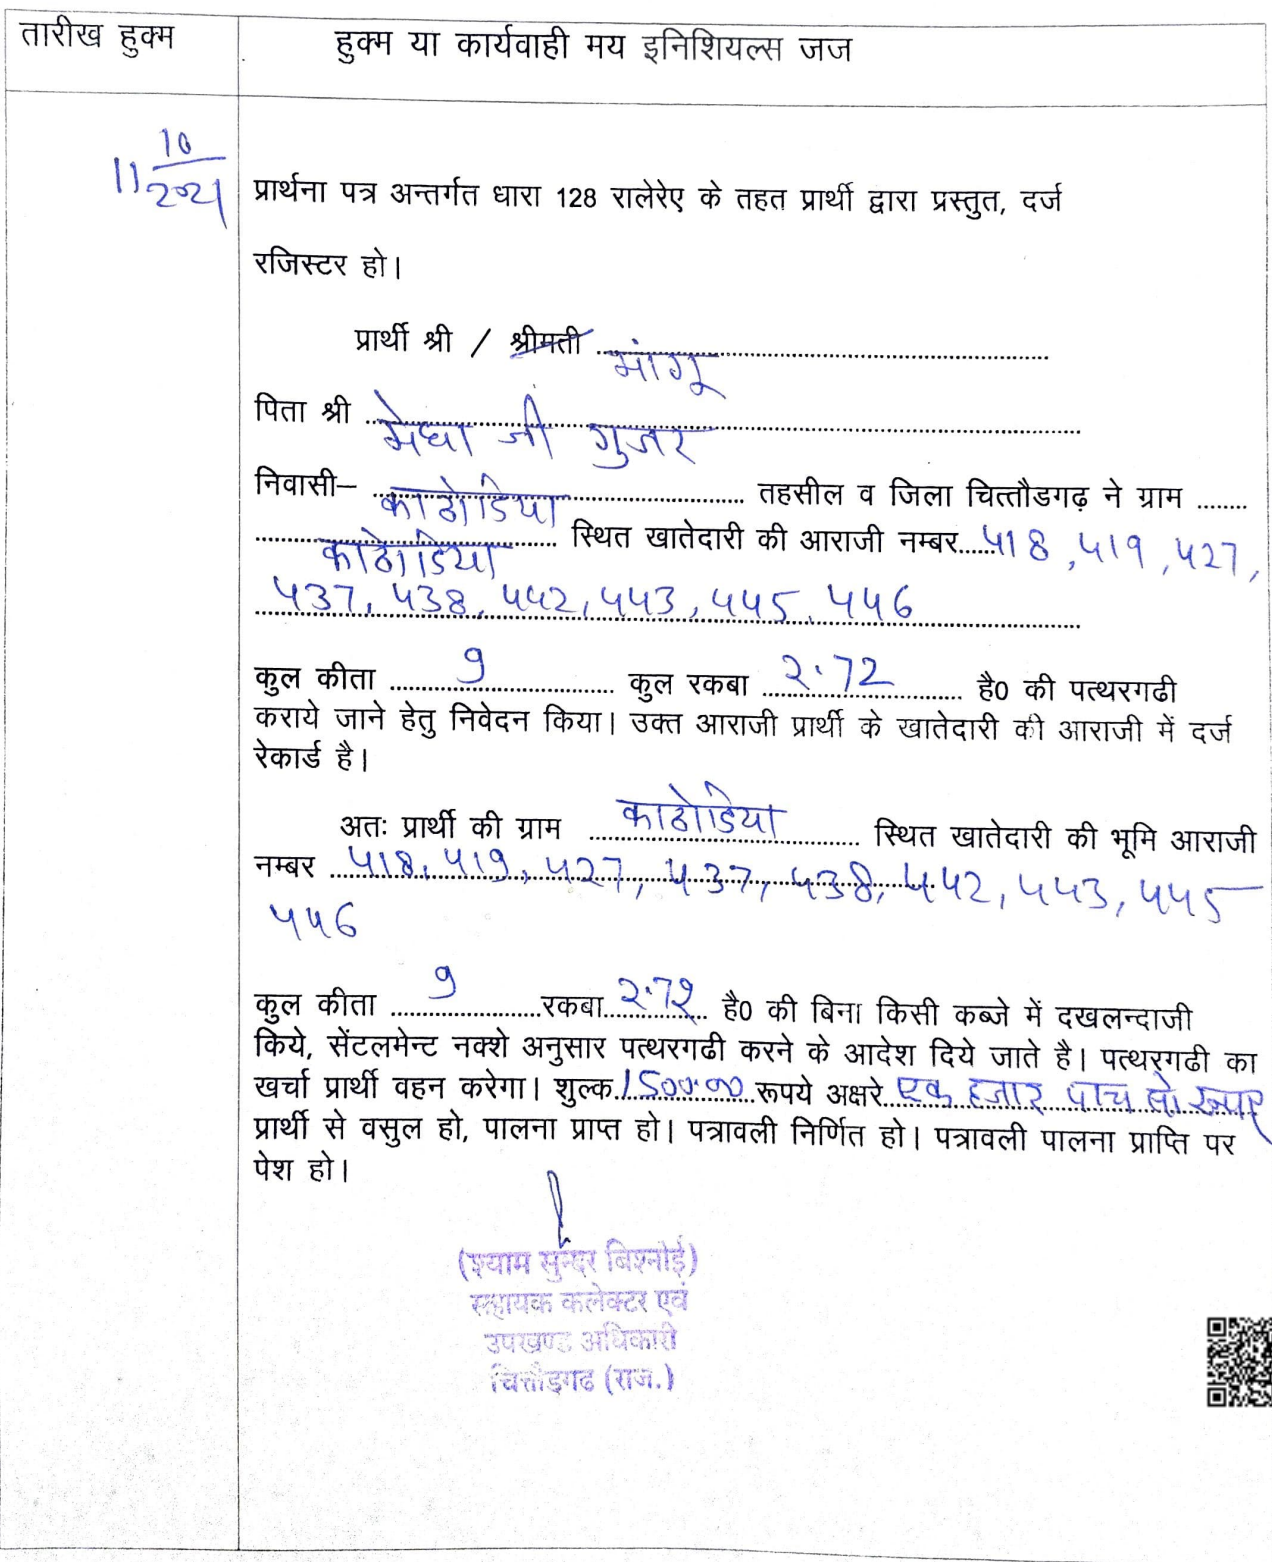 तारीख हुक्म
हुक्म या कार्यवाही मय इनिशियल्स जज
11 10/2021
प्रार्थना पत्र अन्तर्गत धारा 128 रालेरेए के तहत प्रार्थी द्वारा प्रस्तुत, दर्ज
रजिस्टर हो।
प्रार्थी श्री / श्रीमती मांगू
पिता श्री मेघा जी गुजर
निवासी– काठोडिया तहसील व जिला चित्तौडगढ़ ने ग्राम
काठोडिया स्थित खातेदारी की आराजी नम्बर 418, 419, 427,
437, 438, 442, 443, 445, 446
कुल कीता 9 कुल रकबा 2.72 है0 की पत्थरगढी
कराये जाने हेतु निवेदन किया। उक्त आराजी प्रार्थी के खातेदारी की आराजी में दर्ज
रेकार्ड है।
अतः प्रार्थी की ग्राम काठोडिया स्थित खातेदारी की भूमि आराजी
नम्बर 418, 419, 427, 437, 438, 442, 443, 445
446
कुल कीता 9 रकबा 2.72 है0 की बिना किसी कब्जे में दखलन्दाजी
किये, सेंटलमेन्ट नक्शे अनुसार पत्थरगढी करने के आदेश दिये जाते है। पत्थरगढी का
खर्चा प्रार्थी वहन करेगा। शुल्क 1500.00 रूपये अक्षरे एक हजार पाच सो रूपए
प्रार्थी से वसुल हो, पालना प्राप्त हो। पत्रावली निर्णित हो। पत्रावली पालना प्राप्ति पर
पेश हो।
(श्याम सुन्दर बिश्नोई)
सहायक कलेक्टर एवं
उपखण्ड अधिकारी
चित्तौड़गढ (राज.)